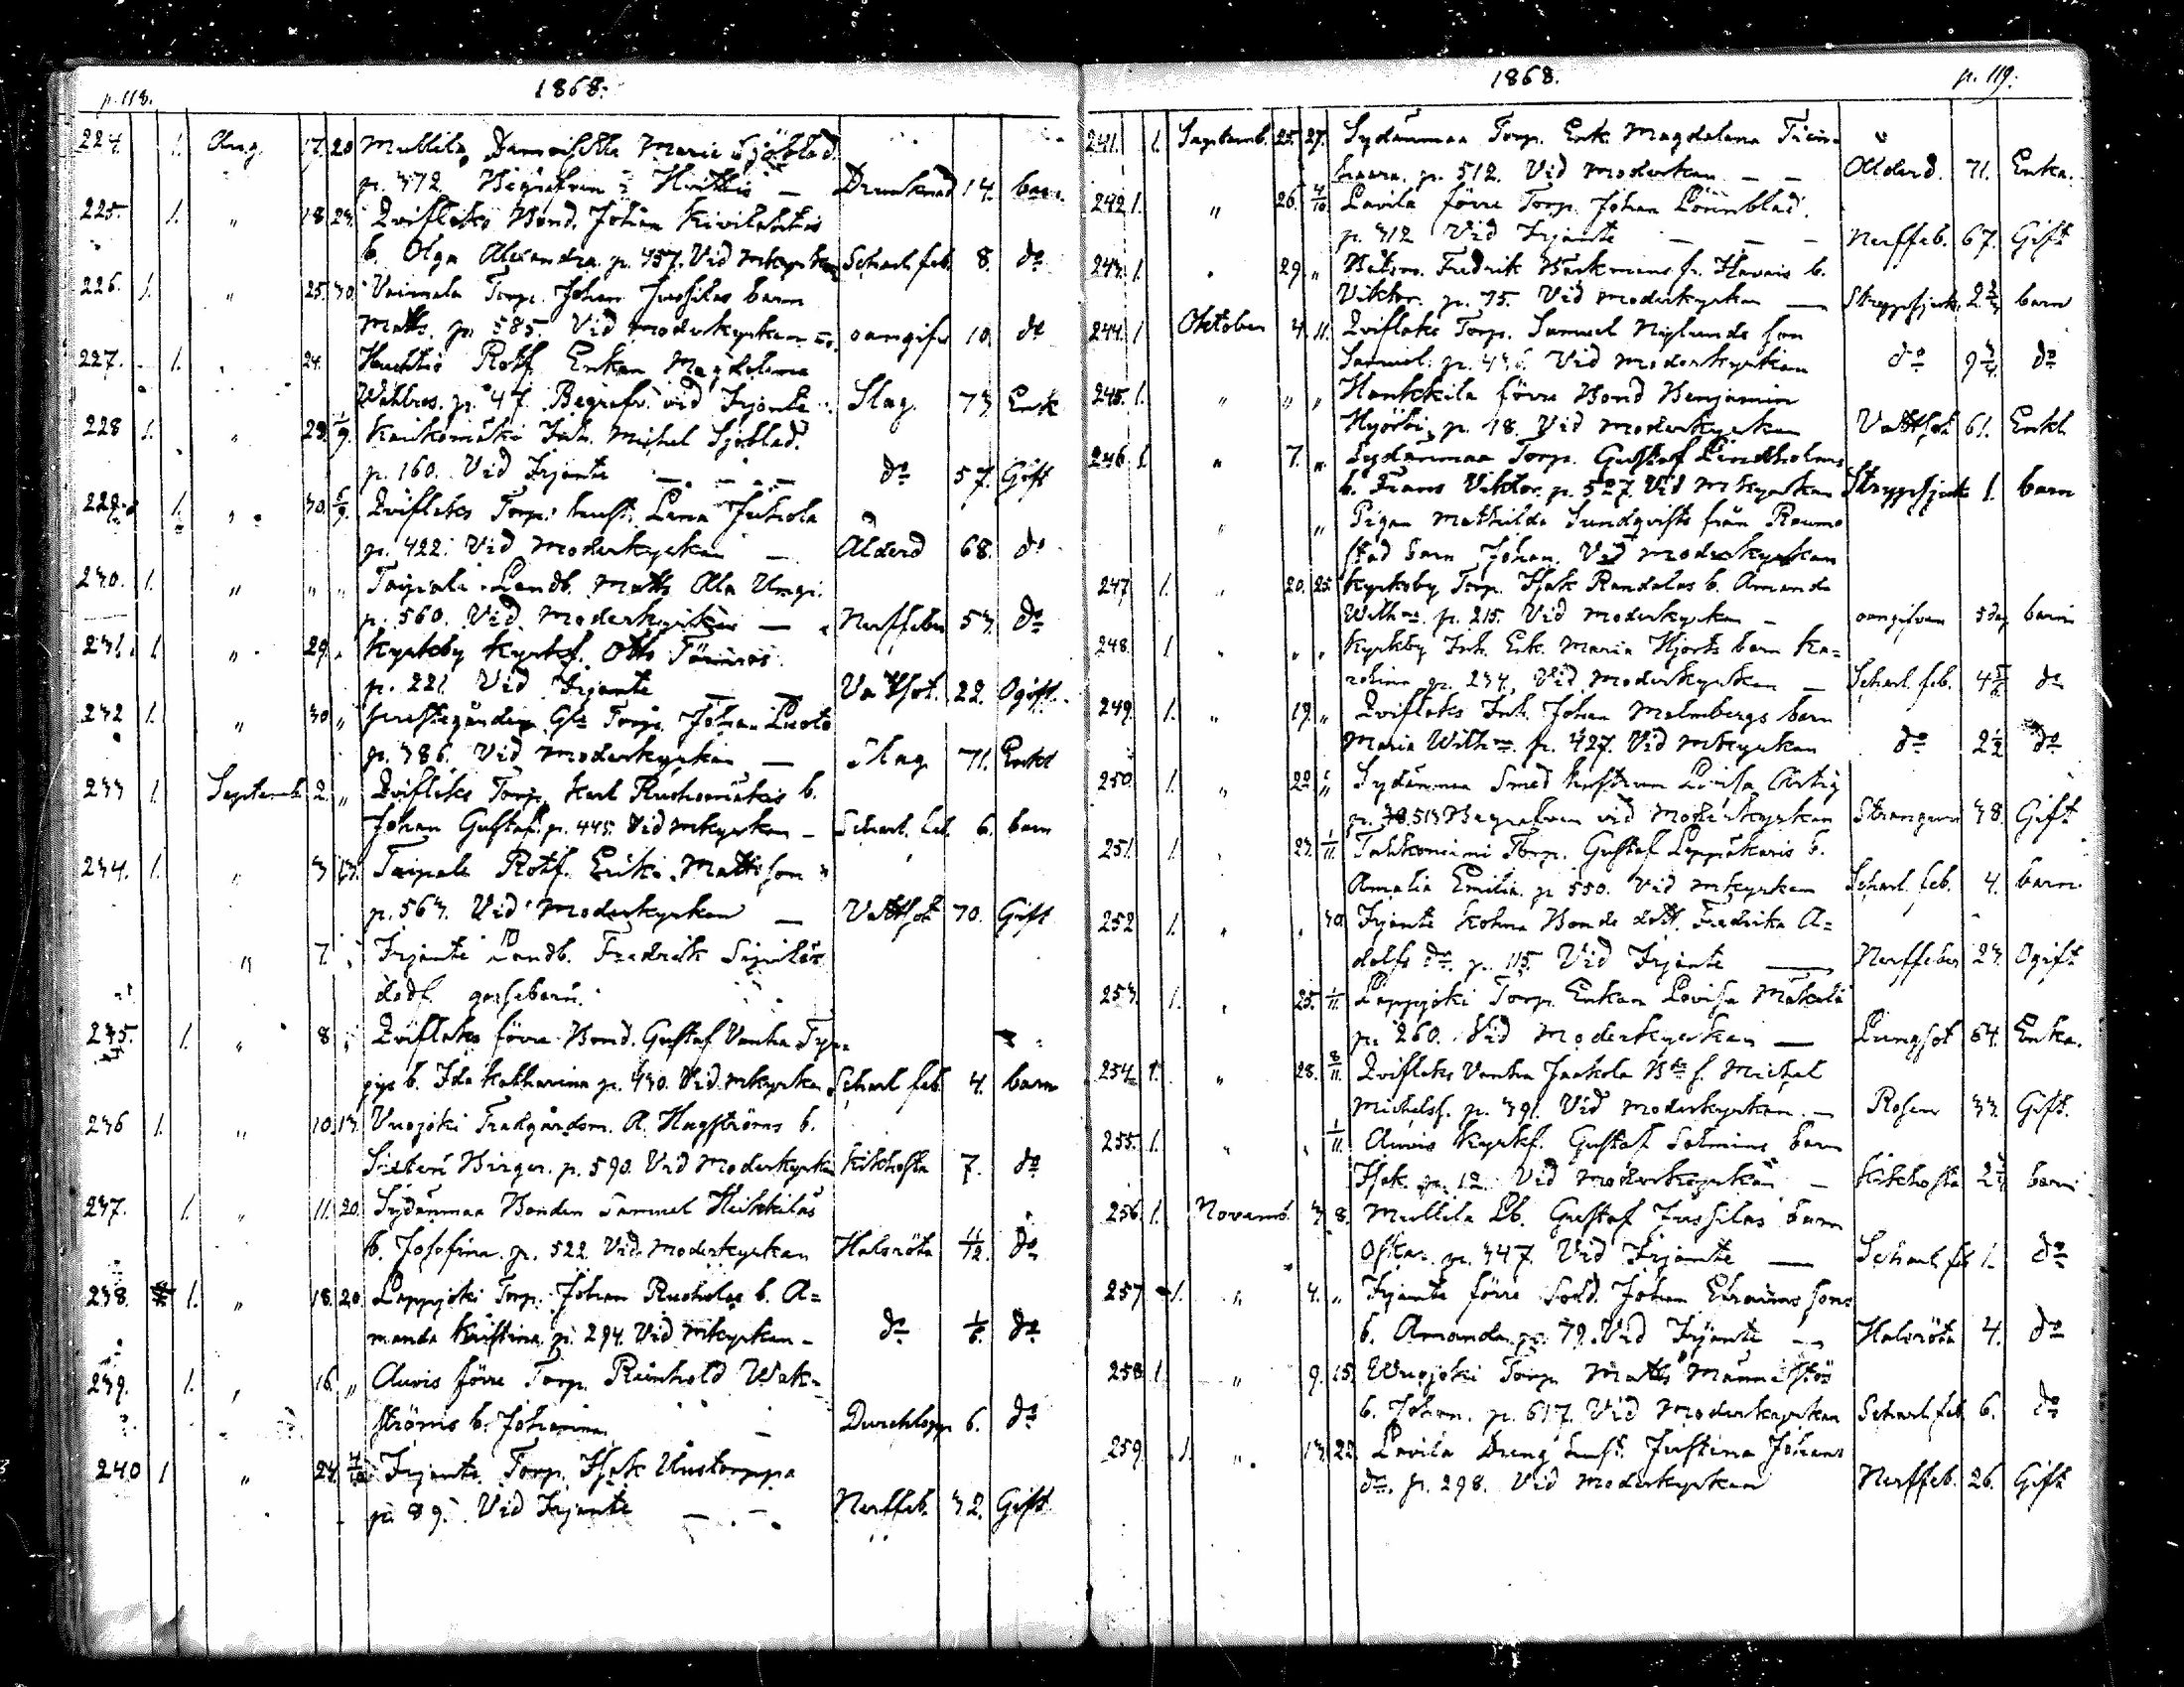 p. 118. 1868.
224. 1. Aug. 17. 20 Mullila, Maria Sjöblad.
p. 372. Begrafven i Hvittis — Drunknad 14. barn
225. 1. " 18. 23. Qviflaks Bond. Johan Kivilahtis
b. Olga Alexandra. p. 457. Vid mkyrkan Scharl. feb. 8. do
226. 1. " 25. 30. Vainmala Torp. Johan Jussilas barn
Matts. p. 585. Vid moderkyrkan oangifv. 10. do
227. 1. " 24. Huhtio Rotf. Enkan Magdalena
p. 47. Begrafv. vid Irjante Slag. 73 Enk
228 1. " 29. 1/9. Kaukomäki Inh. Michel Sjöblad.
p. 160. Vid Irjante — do 57. Gift
229. 1. " 30. 6/9. Qviflaks Torp. hust. Lena Juhola
p. 422. Vid moderkyrkan — Ålderd 68. do
230. 1. " " " Taipale Landb. Matts Ala Ungi.
p. 560. Vid moderkyrkan — Nerffeber 53. do
231. 1. " 29. " Kyrkoby Kyrkf. Otto
p. 221. Vid Irjante — Vattsot. 22. Ogift.
232 1. " 30 " Torp. Johan Luoto
p. 386. Vid moderkyrkan — Slag 71. Enkl
233 1. Septemb. 2. " Qviflaks Torp. Karl Ruohomäkis b.
Johan Gustaf. p. 445. Vid mkyrkan — Scharl. feb. 6. barn
234. 1. " 3 13. Taipale Rotf. Erik Mattsson
p. 563. Vid Moderkyrkan — Vattsot 70. Gift
" 7. " Irjante Landb. Fredrik Sipiläs
dödf. gossebarn.
235. 1. " 8 " Qviflaks förre Bond. Gustaf Vanha Typ=
pys b. Ida Katharina p. 430. Vid mkyrkan Scharl. feb. 4. barn
236 1. " 10. 13. Vuojoki Trädgårdsm. A. Hagströms b.
Birger. p. 590. Vid Moderkyrkan Kikhosta 7. do
237. 1. " 11. 20. Sydänmaa Bonden Samuel Heikkiläs
b. Josefina. p. 522. Vid Moderkyrkan Halsröta 11/12. do
238. 1. " 18. 20. Lappijoki Torp. Johan Ruoholas b. A=
manda Kristina. p. 294. Vid mkyrkan — do 1/6. do
239. 1. " 16. " Auvis förre Torp. Reinhold Wek=
ströms b. Johanna — Durchlopp 6. do
240 1 " 24. 4/10 Irjante Torp. Isak Uustorppa
p. 89. Vid Irjante — Nerffeb. 32. Gift
1868. p. 119.
241. 1. Septemb. 25. 27. Sydänmaa Torp. Enk. Magdalena
p. 512. Vid moderkan — Ålderd. 71. Enka.
242 1. " 26. 4/10. Lavila förre Torp. Johan Lönnblad.
p. 312 Vid Irjante — Nerffeb. 67. Gift
243. 1. " 29. " Båtsm. Fredrik Backmans fr. Havais b.
Viktor. p. 75. Vid moderkyrkan — Strypsjuk 2 3/4 barn
244. 1 Oktober 4. 11. Qviflaks Torp. Samuel Nylunds son
Samuel. p. Vid Moderkyrkan do 9 3/4 do
245. 1. " " " Hankkila förre Bond Benjamin
p. 18. Vid Moderkyrkan Vattsot 61. Enkl.
246. 1. " 7. " Sydänmaa Torp. Gustaf Lindholms
b. Frans Viktor. p. 527. Vid mkyrkan Strypsjuk 1. barn
" " Pigan Mathilda Sundqvists från Raumo
stad barn Johan. Vid moderkyrkan
247 1. " 20. 25. Kyrkoby Torp. Isak Randalas b. Amanda
Wilhna. p. 215. Vid moderkyrkan — oangifven 5 dag barn
248. 1. " " " Kyrkby Inh. Enk. Maria Hjorts barn Ka=
rolina. p. 234. Vid Moderkyrkan — Scharl. feb. 4 5/6 do
249. 1. " 19. " Qviflaks Inh. Johan Malmbergs barn
Maria Wilhna. p. 427. Vid mkyrkan do 2 1/2 do
250. 1. " 22 " Sydänmaa Smed hustrun Lovisa
p. 513 Begrafven vid Moderkyrkan 38. Gift
251. 1. " 23. 1/11. Torp. Gustaf Leppäkaris b.
Amalia Emilia. p. 550. Vid mkyrkan Scharl. feb. 4. barn.
252 1. " " 30. Irjante Kohma Bonde dott. Fredrika A=
dolfs dr. p. 115. Vid Irjante — Nerffeber 23. Ogift
253. 1. " 25. 1/11. Lappijoki Torp. Enkan Lovisa Mäkelä
p. 260. Vid Moderkyrkan — Lungsot 64. Enka.
254 1. " 28. 8/11. Qviflaks Vanha Jaakola Bde s. Michel
Michelss. p. 391. Vid moderkyrkan. — Rosen 33. Gift.
255. 1. " " 1/11. Auvis Kyrkf. Gustaf Salmins barn
Isak. p. 12. Vid moderkyrkan — Kikhosta 2 3/4 barn
256. 1. Novemb. 3 8. Mullila Lb. Gustaf Jussilas barn
Oskar. p. 347. Vid Irjante — Scharl. feb 1. do
257 1. " 4. " Irjante förre Sold. Johan Efraims sons
b. Amanda. p. 79. Vid Irjante — Halsröta 4. do
258 1. " 9. 15. Wuojoki Torp. Matts Männistös
b. Johan. p. 617. Vid Moderkyrkan Scharl. feb 6. do
259 1. " 13. 22. Lavila Dreng hust. Justina Johans
dr. p. 298. Vid moderkyrkan Nerffeb. 26. Gift